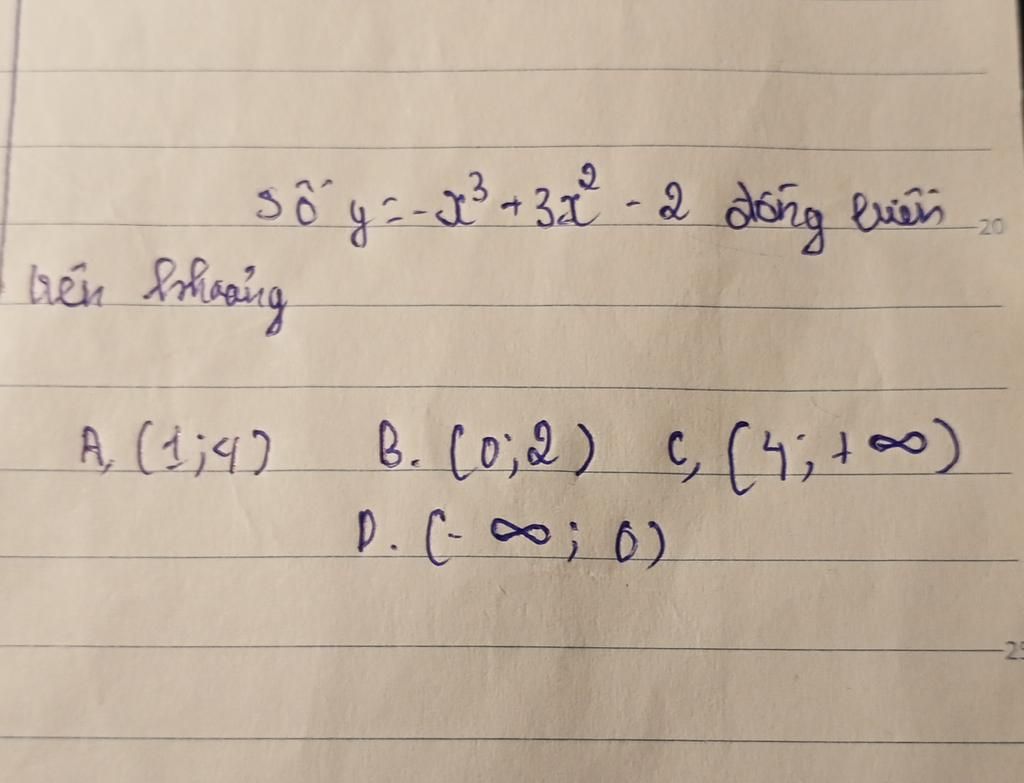 Số y = -x³ + 3x² - 2 đồng biến 20
trên khoảng
A, (1;4) B. (0;2) C, (4; +∞)
D. (-∞; 0)
25